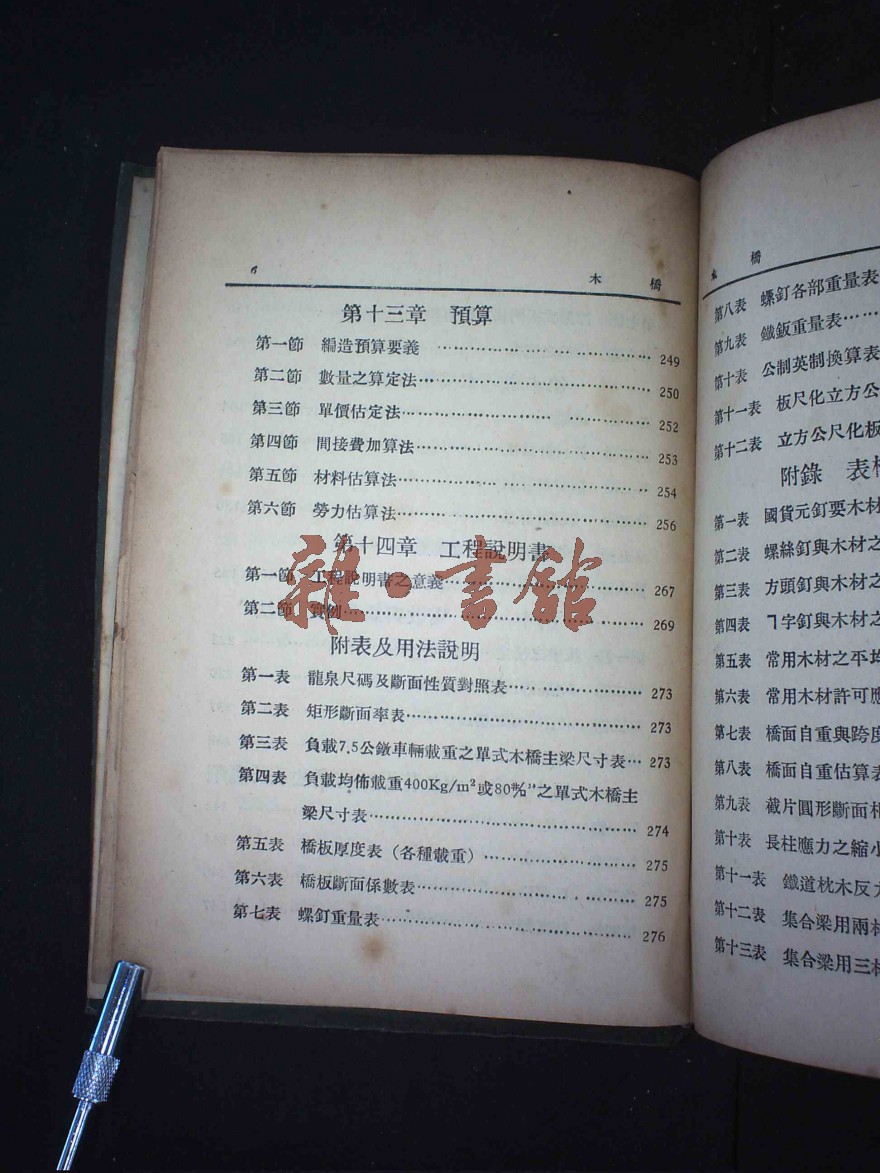 6 木橋
第十三章 預算
第一節 編造預算要義 ……………………… 249
第二節 數量之算定法……………………… 250
第三節 單價估定法……………………… 252
第四節 間接費加算法……………………… 253
第五節 材料估算法……………………… 254
第六節 勞力估算法……………………… 256
第十四章 工程說明書
第一節 工程說明書之意義……………………… 267
第二節 實例……………………… 269
附表及用法說明
第一表 龍泉尺碼及斷面性質對照表……………… 273
第二表 矩形斷面率表……………………… 273
第三表 負載7.5公鐓車輛載重之單式木橋主梁尺寸表… 273
第四表 負載均佈載重400Kg/m²或80#/□'之單式木橋主
梁尺寸表……………………… 274
第五表 橋板厚度表（各種載重）……………… 275
第六表 橋板斷面係數表……………………… 275
第七表 螺釘重量表……………………… 276
木橋
第八表 螺釘各部重量表
第九表 鐵鈑重量表……
第十表 公制英制換算表
第十一表 板尺化立方公
第十二表 立方公尺化板
附錄 表
第一表 國貨元釘要木材
第二表 螺絲釘與木材之
第三表 方頭釘與木材之
第四表 ㄱ字釘與木材之
第五表 常用木材之平均
第六表 常用木材許可應
第七表 橋面自重與跨度
第八表 橋面自重估算表
第九表 截片圓形斷面相
第十表 長柱應力之縮小
第十一表 鐵道枕木反
第十二表 集合梁用兩材
第十三表 集合梁用三材
雜·書館